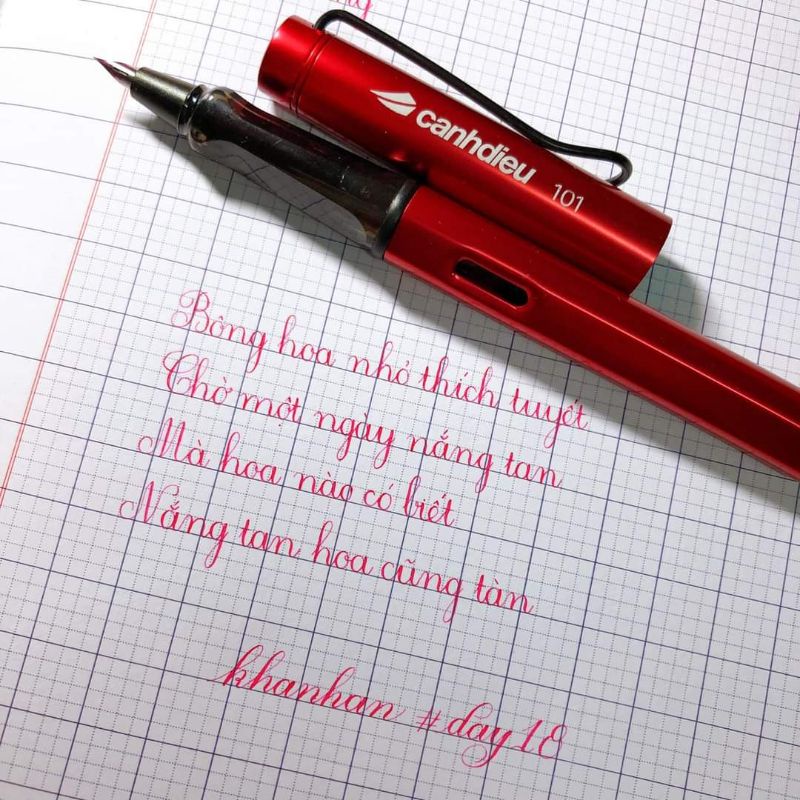 canhdieu 101
Bông hoa nhỏ thích tuyết
Chờ một ngày nắng tan
Mà hoa nào có biết
Nắng tan hoa cũng tàn
khanhan #day18